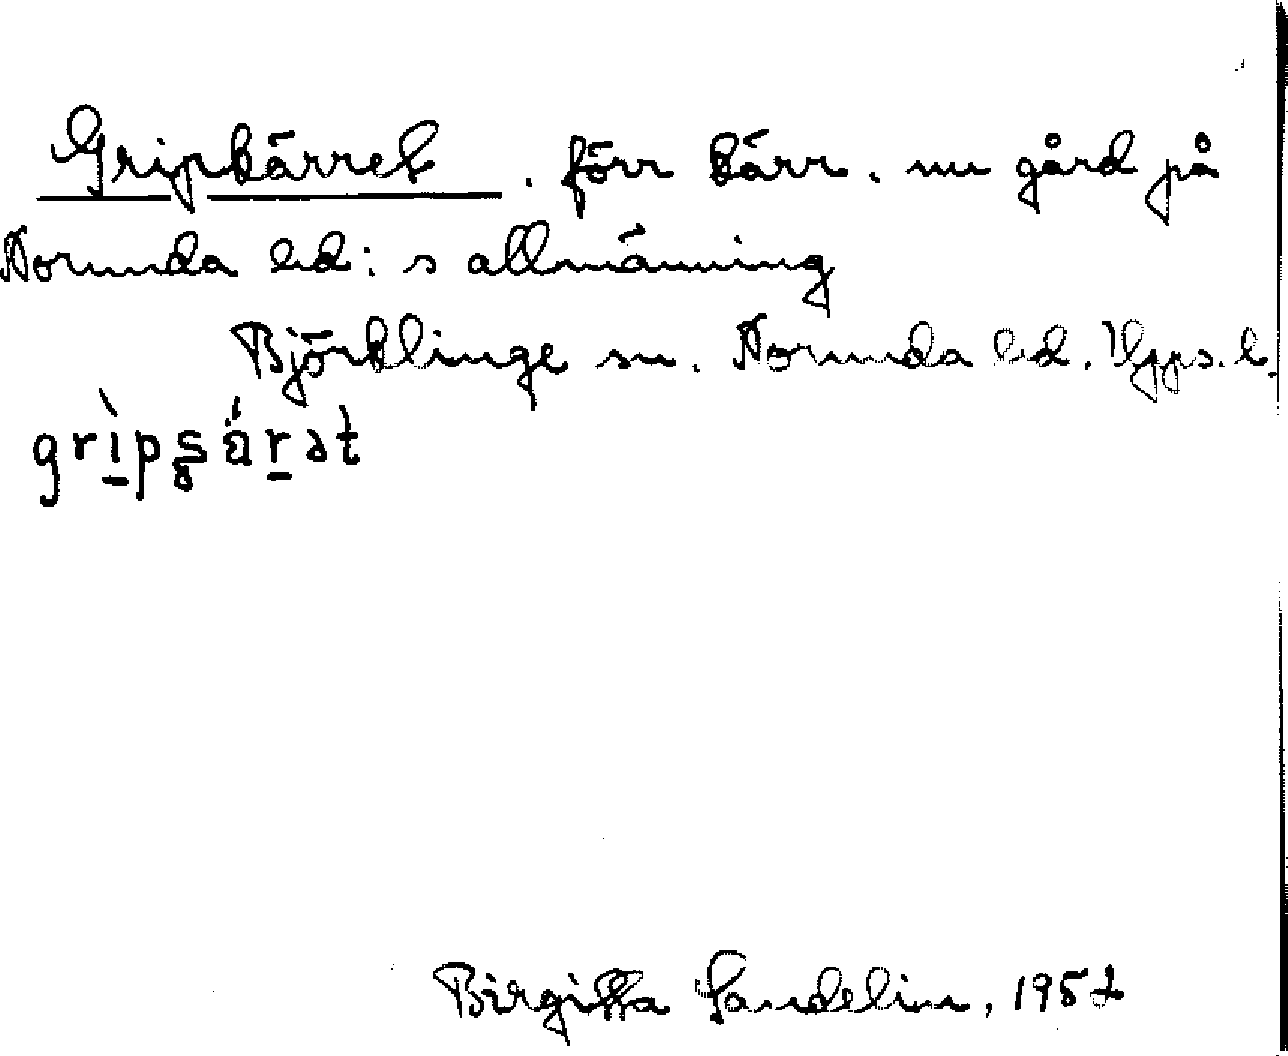 Gripkärret, förr kärr, nu gård på
Norunda hd:s allmänning
Björklinge sn. Norunda hd. Upps. l.
grı̀pʂä́rət
Birgitta Sandelin, 1952